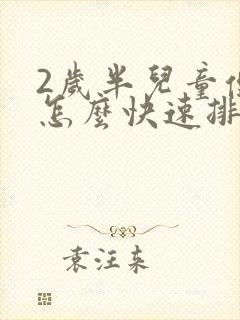 2歲半兒童
怎麼快速排
袁汪束